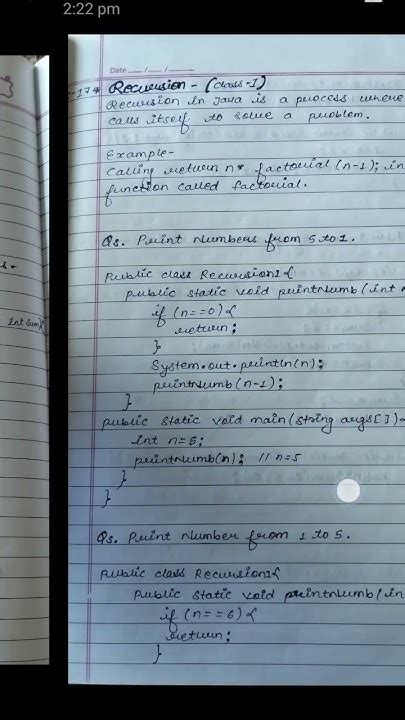 2:22 pm
Date / /
17* Recursion - (class-I)
Recursion in java is a process where
calls itself to solve a problem.
Example-
Calling return n* factorial (n-1); in
function called factorial.
Qs. Print Numbers from 5 to 1.
Public class Recursion1{
public static void printNumb (int
if (n==0){
return;
}
System.out.println(n);
printNumb (n-1);
}
public static void main(string args[]){
int n=5;
printNumb(n); // n=5
}
}
Qs. Print Number from 1 to 5.
Public class Recursion1{
Public static void printNumb (in
if (n==6){
return;
}
s.
int sum){